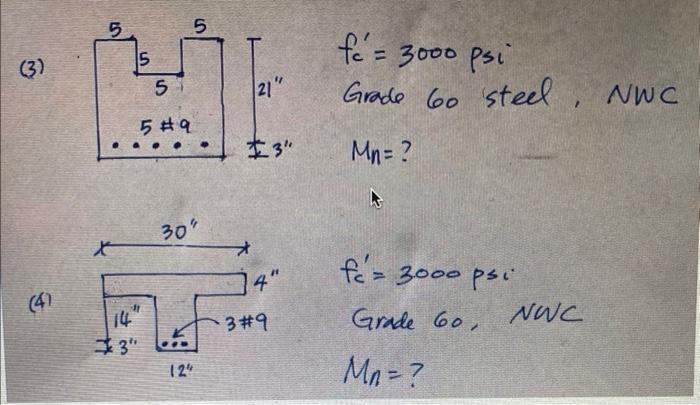 (3)
5 5
5
5
21"
5 #9
3"
fc' = 3000 psi
Grade 60 steel, NWC
Mn = ?
(4)
30"
4"
14"
3#9
3"
12"
fc' = 3000 psi
Grade 60, NWC
Mn = ?